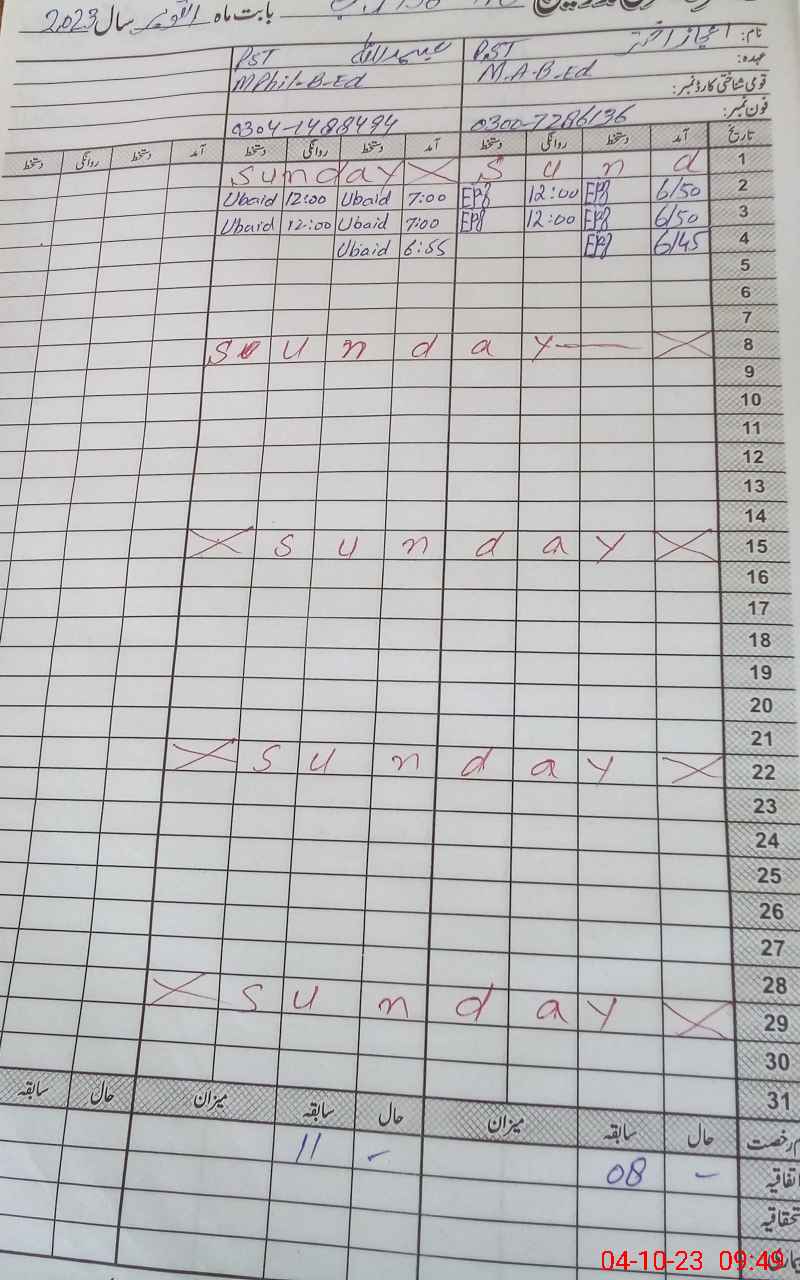 بابت ماہ اکتوبر سال 2023
نام: اعجاز اختر عبیداللہ
عہدہ: PST PST
M.A-B-Ed MPhil-B-Ed
قومی شناختی کارڈ نمبر:
فون نمبر: 0300-7286136 0304-1488494
تاریخ آمد دستخط روانگی دستخط آمد دستخط روانگی دستخط آمد دستخط روانگی دستخط
1 d n u S X Sunday
2 6/50 12:00 7:00 Ubaid 12:00 Ubaid
3 6/50 12:00 7:00 Ubaid 12:00 Ubaid
4 6/45 6:55 Ubaid
5
6
7
8 Sunday
9
10
11
12
13
14
15 Sunday
16
17
18
19
20
21
22 Sunday
23
24
25
26
27
28
29 Sunday
30
31
رخصت حال سابقہ میزان حال سابقہ میزان حال سابقہ
اتفاقیہ - 08 - 11
04-10-23 09:49